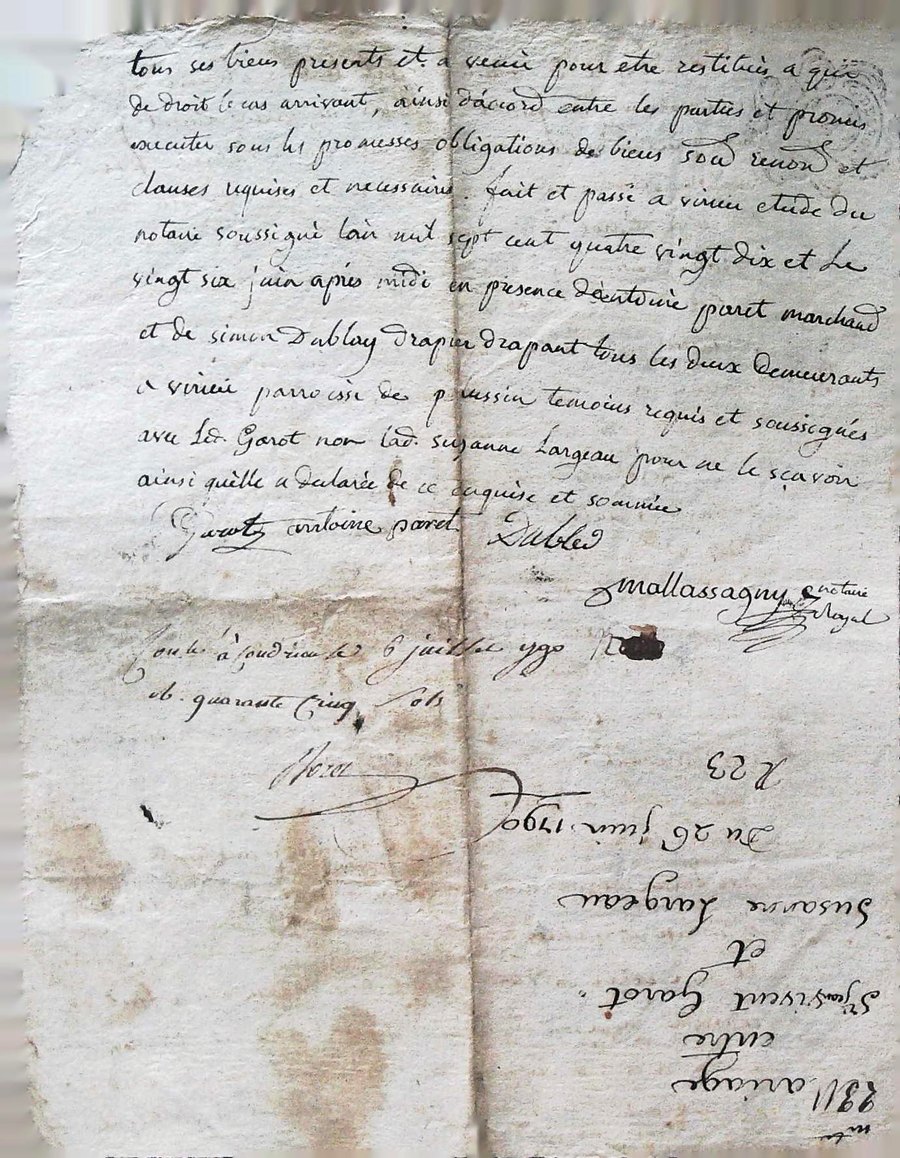 tous ses biens presents et a venir pour etre restitués a qui
de droit le cas arrivant, ainsi d'accord entre les parties et promis
executer sous les promesses obligations de biens soud renond et
clauses requises et necessaires. fait et passé a virieu etude du
notaire soussigné l'an mil sept cent quatre vingt dix et le
vingt six juin après midi en presence d'antoine paret marchand
et de simon Dublay drapier drapant tous les deux demeurants
a virieu parroisse de pelussin temoins requis et soussignés
avec Led. Garot non lad. suzanne Largeau pour ne le sçavoir
ainsi qu'elle a declarée de ce enquise et sommée
Garot antoine paret Dubled
Mallassagny notaire
Royal
Con.lé à Condrieu le 6 juillet 1790
quarante Cinq sols
R 23
Du 26 juin 1790
Susanne Largeau
et
Sr jean vincent Garot
entre
Mariage